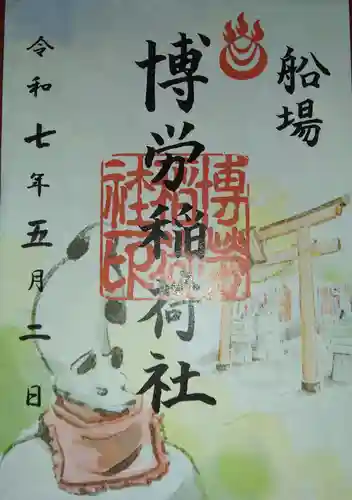 船場
博労稲荷社
博労稲荷社印
令和七年五月二日